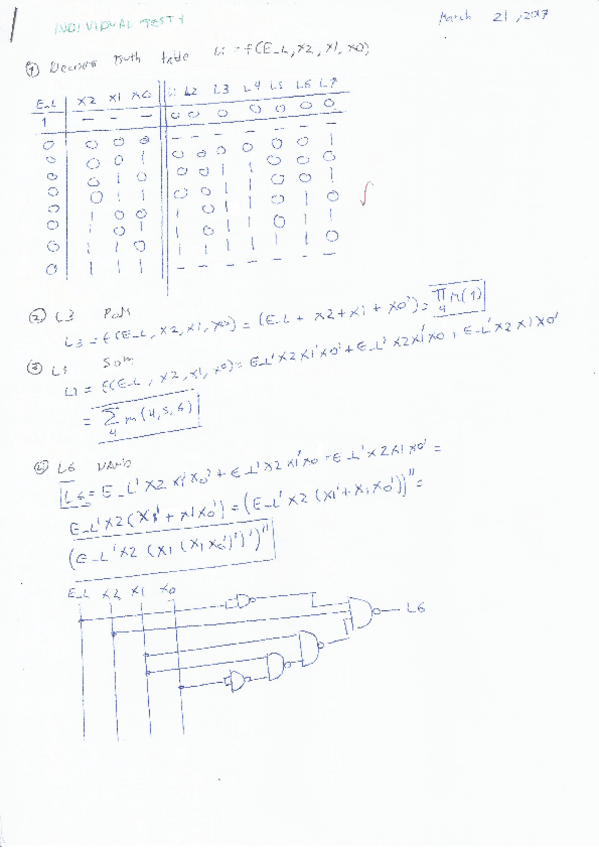 INDIVIDUAL TEST 4
March 21, 2017
① Decoder Truth table Li = f(E_L, X2, X1, X0)
E_L X2 X1 X0 L1 L2 L3 L4 L5 L6 L7
1 - - - 0 0 0 0 0 0 0
0 0 0 0 - - - - - - -
0 0 0 1 0 0 0 0 0 0 1
0 0 1 0 0 0 1 1 0 0 0
0 0 1 1 0 0 1 1 0 0 1
0 1 0 0 1 0 1 1 0 1 0
0 1 0 1 1 0 1 1 0 1 1
0 1 1 0 1 1 1 1 1 1 0
0 1 1 1 - - - - - - -
② L3 PoM
L3 = f(E_L, X2, X1, X0) = (E_L + X2 + X1 + X0') = ∏4 M(1)
③ L1 SoM
L1 = f(E_L, X2, X1, X0) = E_L'X2X1'X0' + E_L'X2X1'X0 + E_L'X2X1X0'
= ∑4 m(4,5,6)
④ L6 NAND
L6 = E_L'X2X1'X0' + E_L'X2X1'X0 + E_L'X2X1X0' =
E_L'X2(X1' + X1X0') = (E_L'X2(X1' + X1X0'))'' =
(E_L'X2(X1(X1X0')')')''
E_L X2 X1 X0
L6